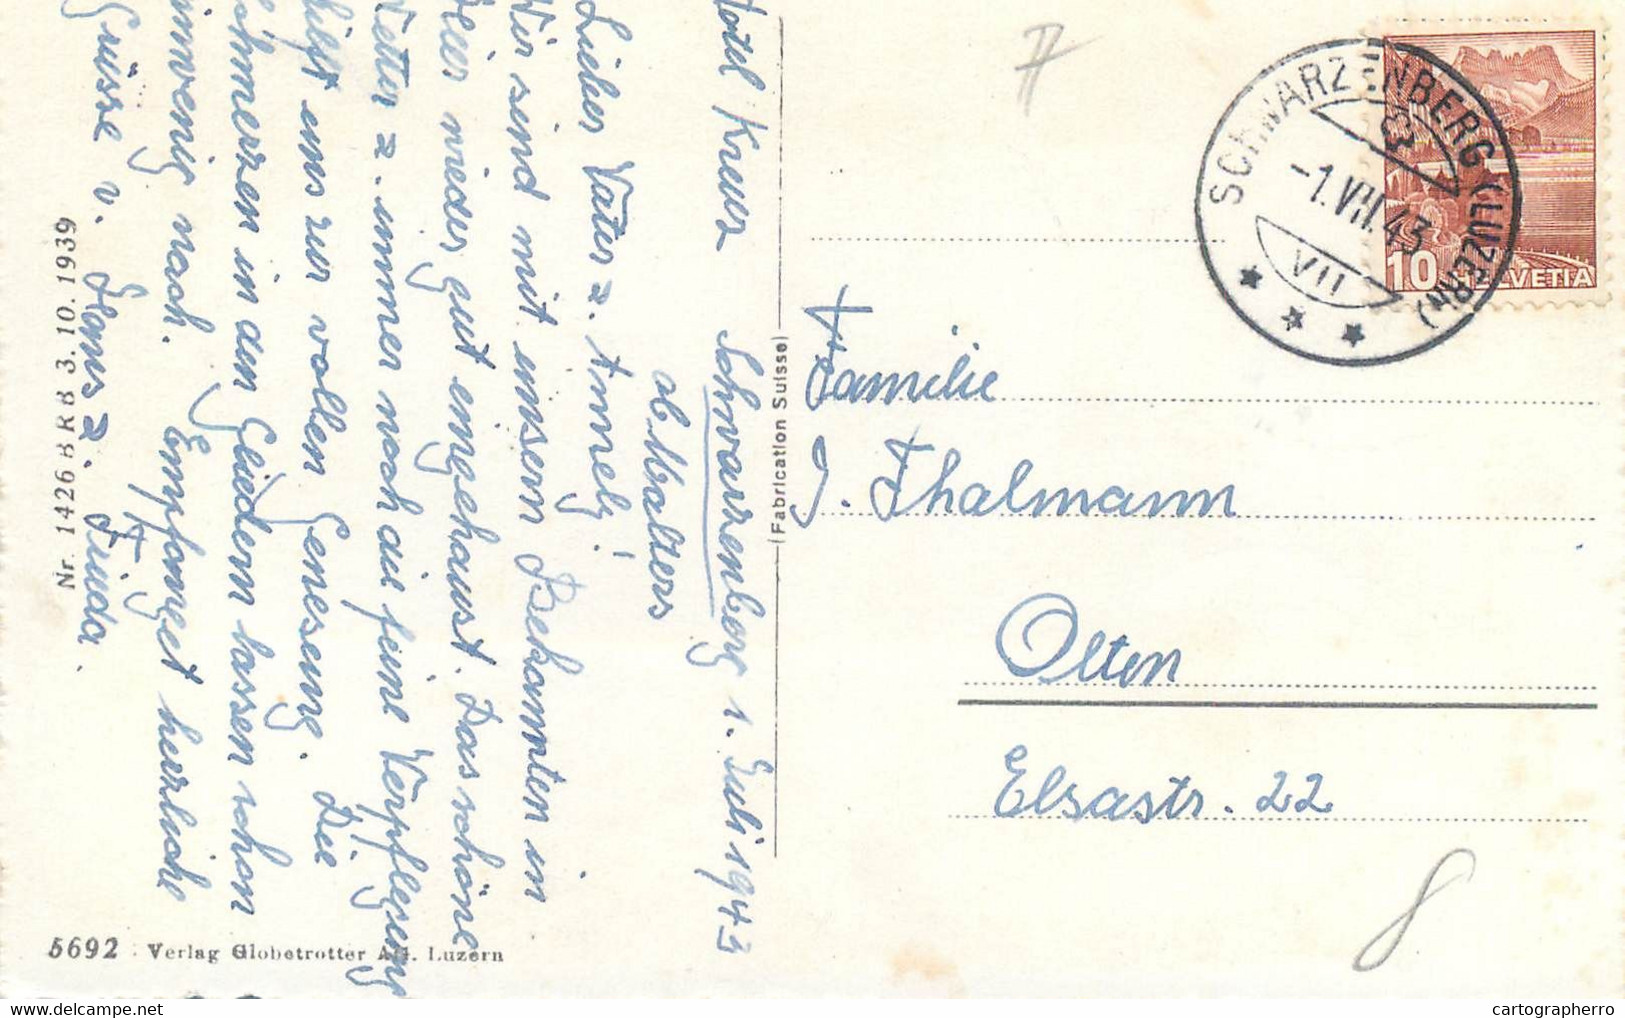 Hotel Kreuz Schwarzenberg 1. Juli 1943
ob Malters
Lieber Vater u. Annely!
Wir sind mit unsern Bekannten in
hier wieder gut eingehaust. Das schöne
Wetter u. immer noch die feine Verpflegung
hilft uns zur vollen Genesung. Die
Schmerzen in den Gliedern lassen schon
einwenig nach. Empfanget herzliche
Grüsse v. Hans u. Frieda.
Nr. 1426 BRB 3. 10. 1939
5692 Verlag Globetrotter AG. Luzern
(Fabrication Suisse)
SCHWARZENBERG (LUZERN)
-1.VII.43
VII
10 HELVETIA
Familie
J. Thalmann
Olten
Elsastr. 22
8
cartographerro